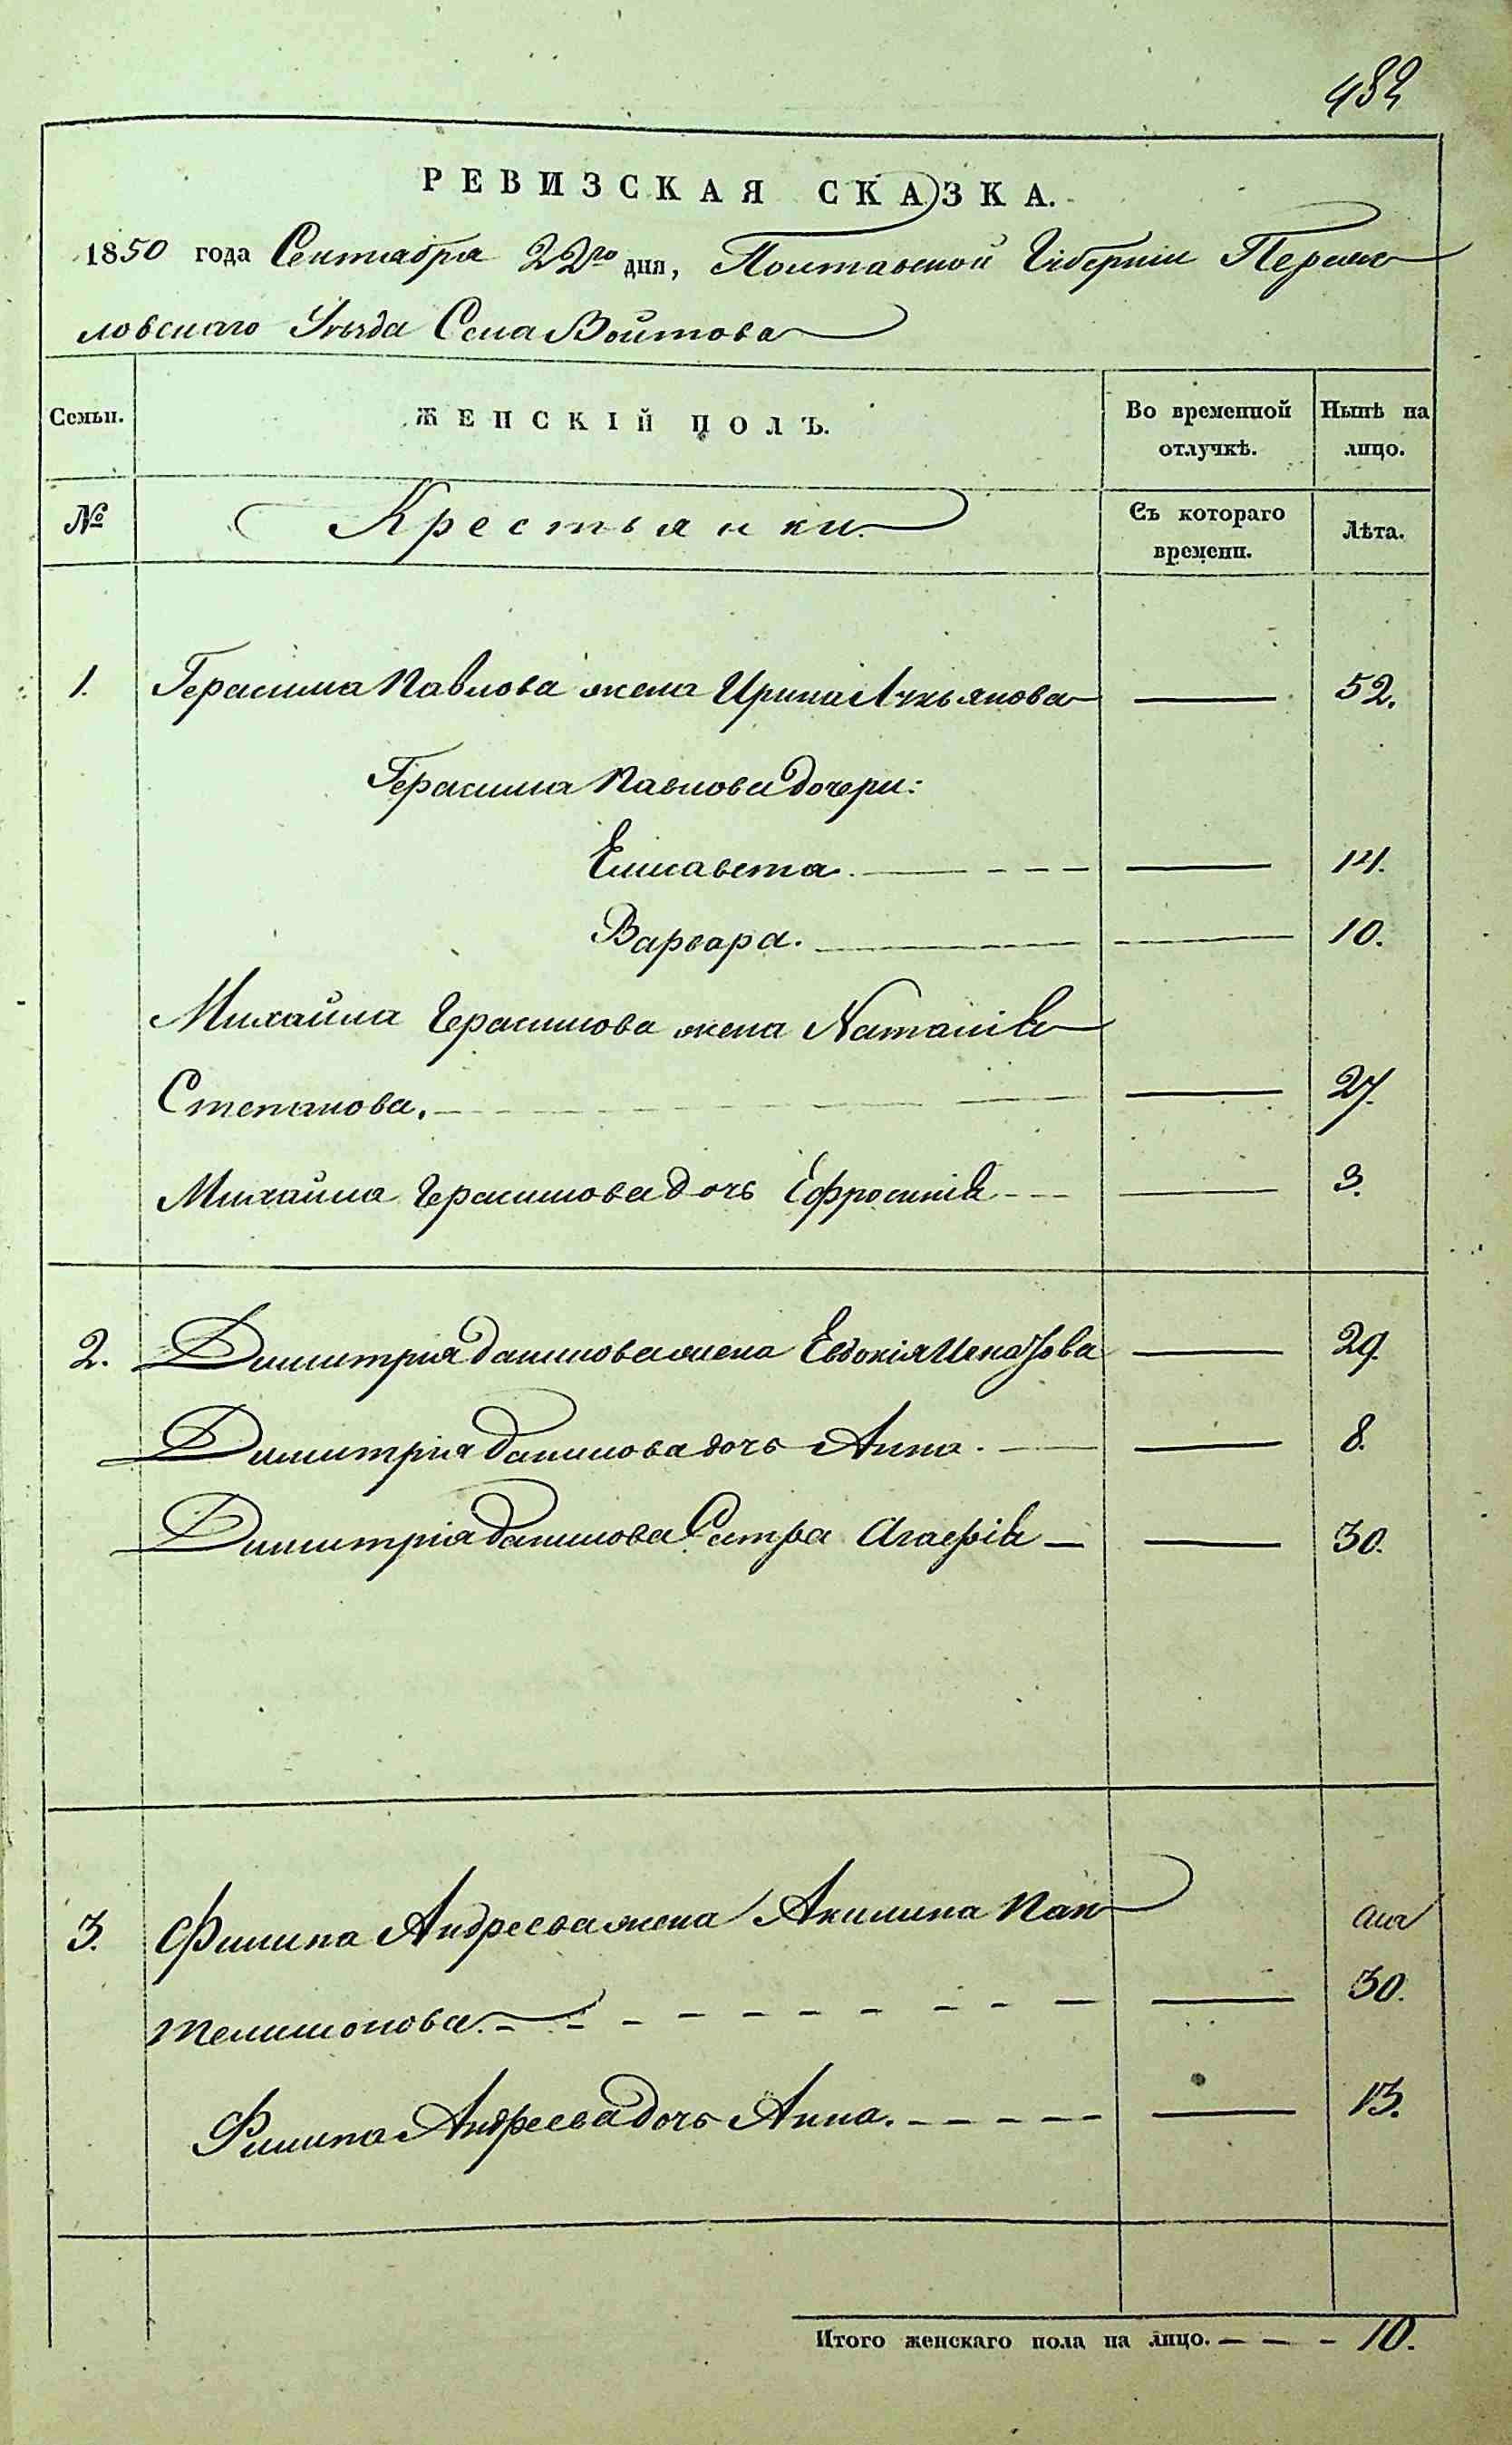 482
РЕВИЗСКАЯ СКАЗКА.
1850 года Сентября 22го дня, Полтавской Губернии Переяс
ловскаго Уѣзда Села Войтова
Семьи. ЖЕНСКІЙ ПОЛЪ. Во временной отлучкѣ. Нынѣ на лицо.
№ Крестьянки. Съ котораго времени. Лѣта.
1. Герасима Павлова жена Ирина Лукьянова — 52.
Герасима Павлова дочери:
Елисавета. — 14.
Варвара. — 10.
Михайла Герасимова жена Наталія
Степанова. — 27.
Михайла Герасимова дочь Ефросинія — 3.
2. Димитрия Данилова жена Евдокія — 29.
Димитрія Данилова дочь Анна. — 8.
Димитрія Данилова Сестра Агафія — 30.
3. Филипа Андреева жена Акилина Пан
телимонова. — 30.
Филипа Андреева дочь Анна. — 13.
Итого женскаго пола на лицо. — 10.